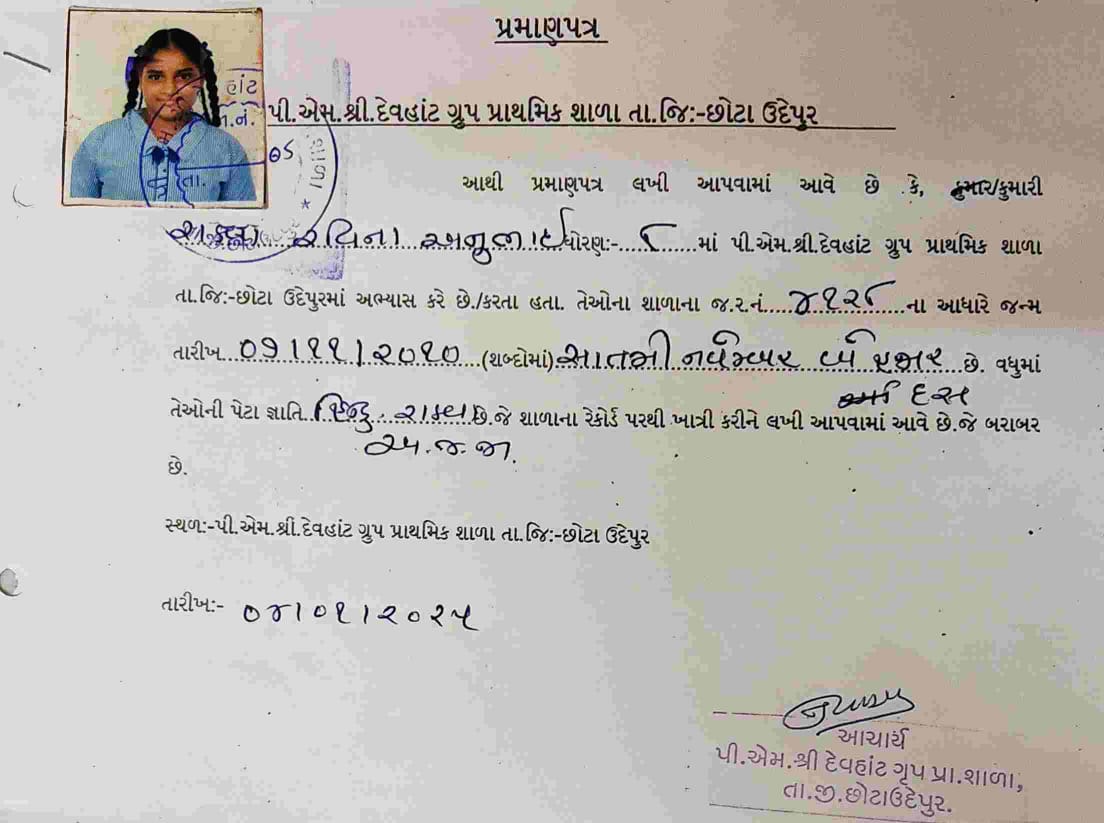 પ્રમાણપત્ર
હાંટ
પી.એસ.શ્રી.દેવહાંટ ગ્રુપ પ્રાથમિક શાળા તા.જિ:-છોટા ઉદેપુર
તા.
શાળા
આથી પ્રમાણપત્ર લખી આપવામાં આવે છે કે, કુમાર/કુમારી
રાઠવા રવિના અનુભાઈ ધોરણ:- ૮ માં પી.એમ.શ્રી.દેવહાંટ ગ્રુપ પ્રાથમિક શાળા
તા.જિ:-છોટા ઉદેપુરમાં અભ્યાસ કરે છે./કરતા હતા. તેઓના શાળાના જ.ર.નં. ૪૧૨૮ ના આધારે જન્મ
તારીખ ૦૭/૧૧/૨૦૧૦ (શબ્દોમાં) સાતમી નવેમ્બર બે હજાર છે. વધુમાં
દસ
તેઓની પેટા જ્ઞાતિ હિન્દુ રાઠવા છે.જે શાળાના રેકોર્ડ પરથી ખાત્રી કરીને લખી આપવામાં આવે છે.જે બરાબર
અ.જ.જા.
છે.
સ્થળ:-પી.એમ.શ્રી.દેવહાંટ ગ્રુપ પ્રાથમિક શાળા તા.જિ:-છોટા ઉદેપુર
તારીખ:- ૦૪/૦૧/૨૦૨૫
આચાર્ય
પી.એમ.શ્રી દેવહાંટ ગૃપ પ્રા.શાળા,
તા.જી.છોટાઉદેપુર.